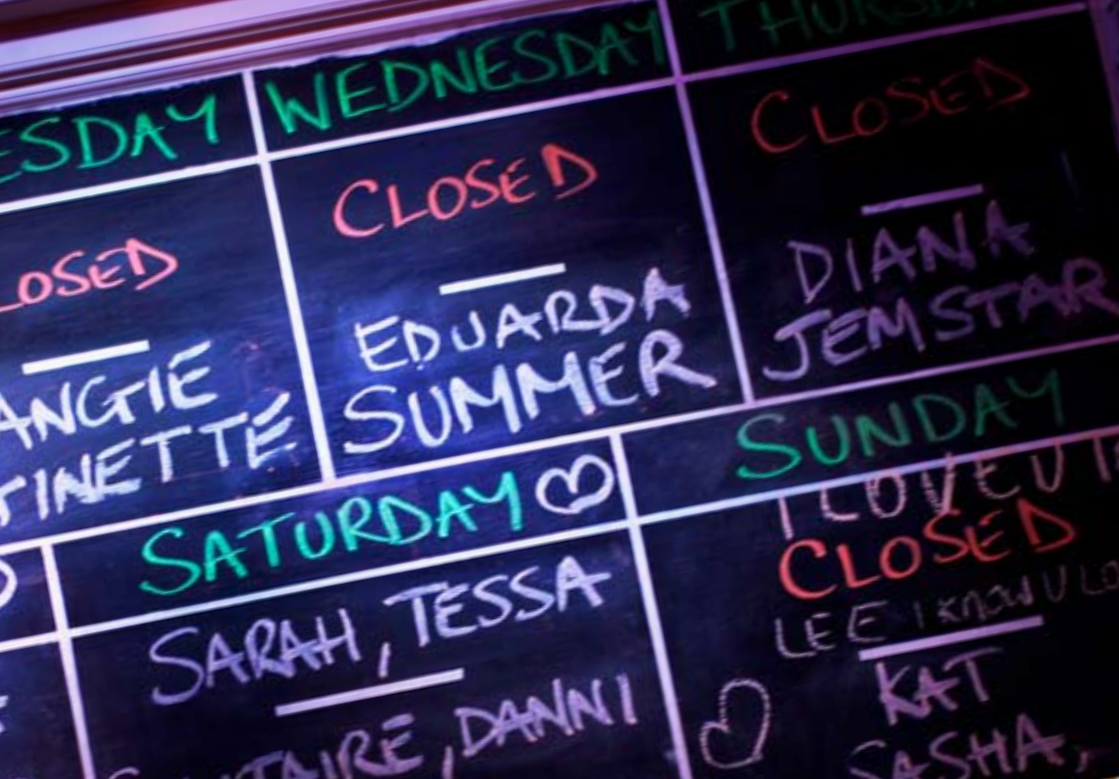 ESDAY
LOSED
ANGIE
TINETTE
WEDNESDAY
CLOSED
EDUARDA
SUMMER
THURSDA
CLOSED
DIANA
JEMSTAR
SATURDAY
SARAH, TESSA
TAIRE, DANNI
SUNDAY
I LOVE U
CLOSED
LEE I KNOW U LO
KAT
SASHA,